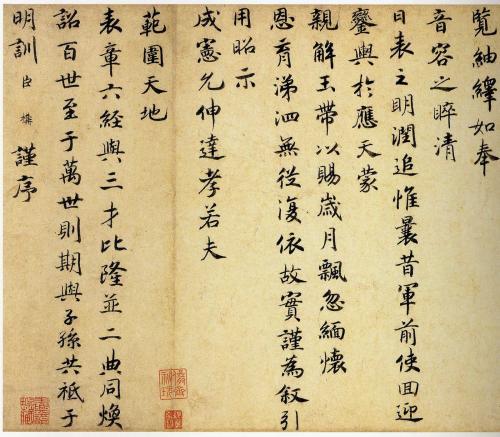 覧紬繹如奉
音容之睟清
日表之明潤追惟曩昔軍前使回迎
鑾輿於應天蒙
親解玉帶以賜歲月飄忽緬懷
恩育涕泗無從復依故實謹為叙引
用昭示
成憲允伸達孝若夫
範圍天地
表章六經與三才比隆並二典同煥
詔百世至于萬世則期與子孫共祗于
明訓臣構謹序